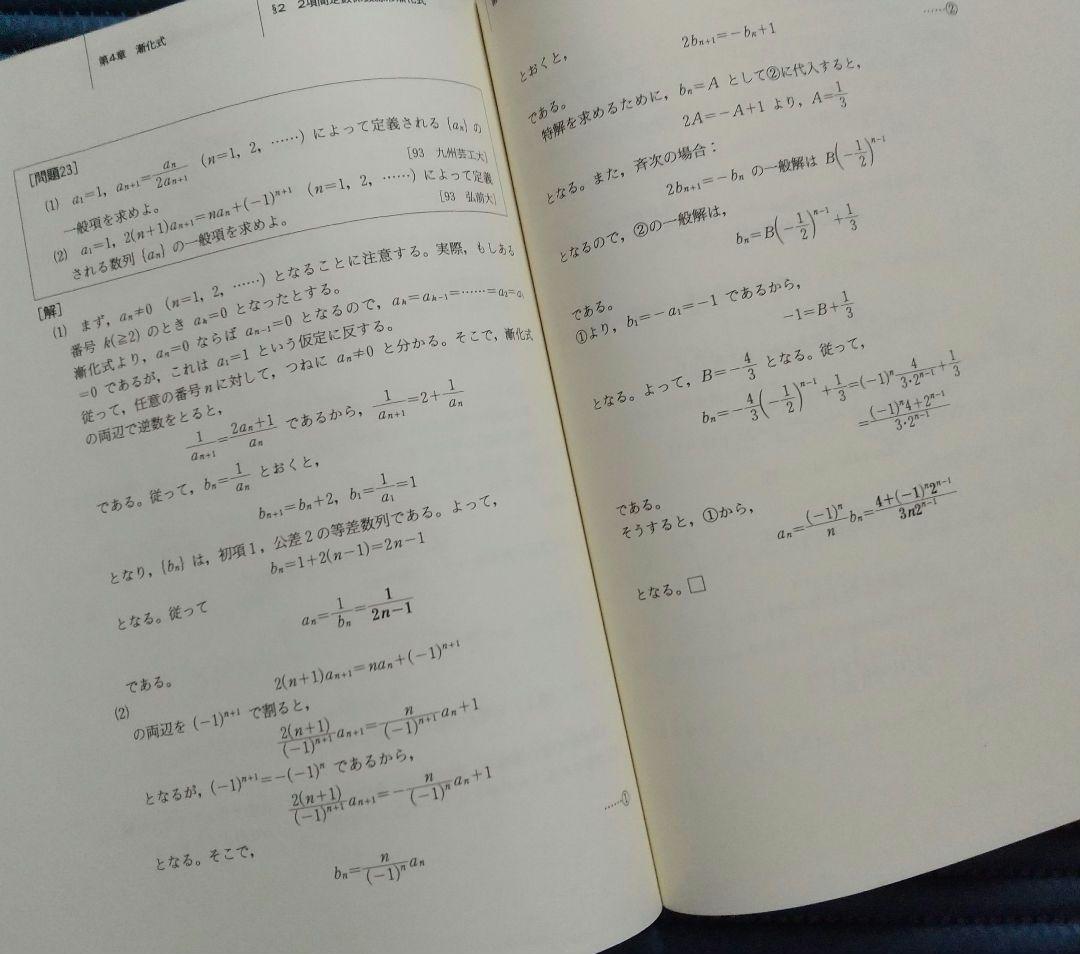 第4章 漸化式
§2 2項間定数係数線形漸化式
[問題23]
(1) a₁=1, aₙ₊₁=aₙ/(2aₙ₊₁) (n=1, 2, ……) によって定義される {aₙ} の
一般項を求めよ。 [93 九州芸工大]
(2) a₁=1, 2(n+1)aₙ₊₁=naₙ+(-1)ⁿ⁺¹ (n=1, 2, ……) によって定義
される数列 {aₙ} の一般項を求めよ。 [93 弘前大]
[解]
(1) まず, aₙ≠0 (n=1, 2, ……) となることに注意する。実際, もしある
番号 k(≧2) のとき aₖ=0 となったとする。
漸化式より, aₙ=0 ならば aₙ₋₁=0 となるので, aₖ=aₖ₋₁=……=a₂=a₁
=0 であるが, これは a₁=1 という仮定に反する。
従って, 任意の番号 n に対して, つねに aₙ≠0 と分かる。そこで, 漸化式
の両辺で逆数をとると,
1/aₙ₊₁=(2aₙ+1)/aₙ であるから, 1/aₙ₊₁=2+1/aₙ
である。従って, bₙ=1/aₙ とおくと,
bₙ₊₁=bₙ+2, b₁=1/a₁=1
となり, {bₙ} は, 初項1, 公差2の等差数列である。よって,
bₙ=1+2(n-1)=2n-1
となる。従って
aₙ=1/bₙ=1/(2n-1)
である。
(2) 2(n+1)aₙ₊₁=naₙ+(-1)ⁿ⁺¹
の両辺を (-1)ⁿ⁺¹ で割ると,
2(n+1)/(-1)ⁿ⁺¹ aₙ₊₁=n/(-1)ⁿ⁺¹ aₙ+1
となるが, (-1)ⁿ⁺¹=-(-1)ⁿ であるから,
2(n+1)/(-1)ⁿ⁺¹ aₙ₊₁=-n/(-1)ⁿ aₙ+1
となる。そこで,
bₙ=n/(-1)ⁿ aₙ ……①
とおくと,
2bₙ₊₁=-bₙ+1 ……②
である。
特解を求めるために, bₙ=A として②に代入すると,
2A=-A+1 より, A=1/3
となる。また, 斉次の場合：
2bₙ₊₁=-bₙ の一般解は B(-1/2)ⁿ⁻¹
となるので, ②の一般解は,
bₙ=B(-1/2)ⁿ⁻¹+1/3
である。
①より, b₁=-a₁=-1 であるから,
-1=B+1/3
となる。よって, B=-4/3 となる。従って,
bₙ=-4/3(-1/2)ⁿ⁻¹+1/3=(-1)ⁿ 4/(3·2ⁿ⁻¹)+1/3
=((-1)ⁿ4+2ⁿ⁻¹)/(3·2ⁿ⁻¹)
である。
そうすると, ①から,
aₙ=(-1)ⁿ/n bₙ=(4+(-1)ⁿ2ⁿ⁻¹)/(3n2ⁿ⁻¹)
となる。□